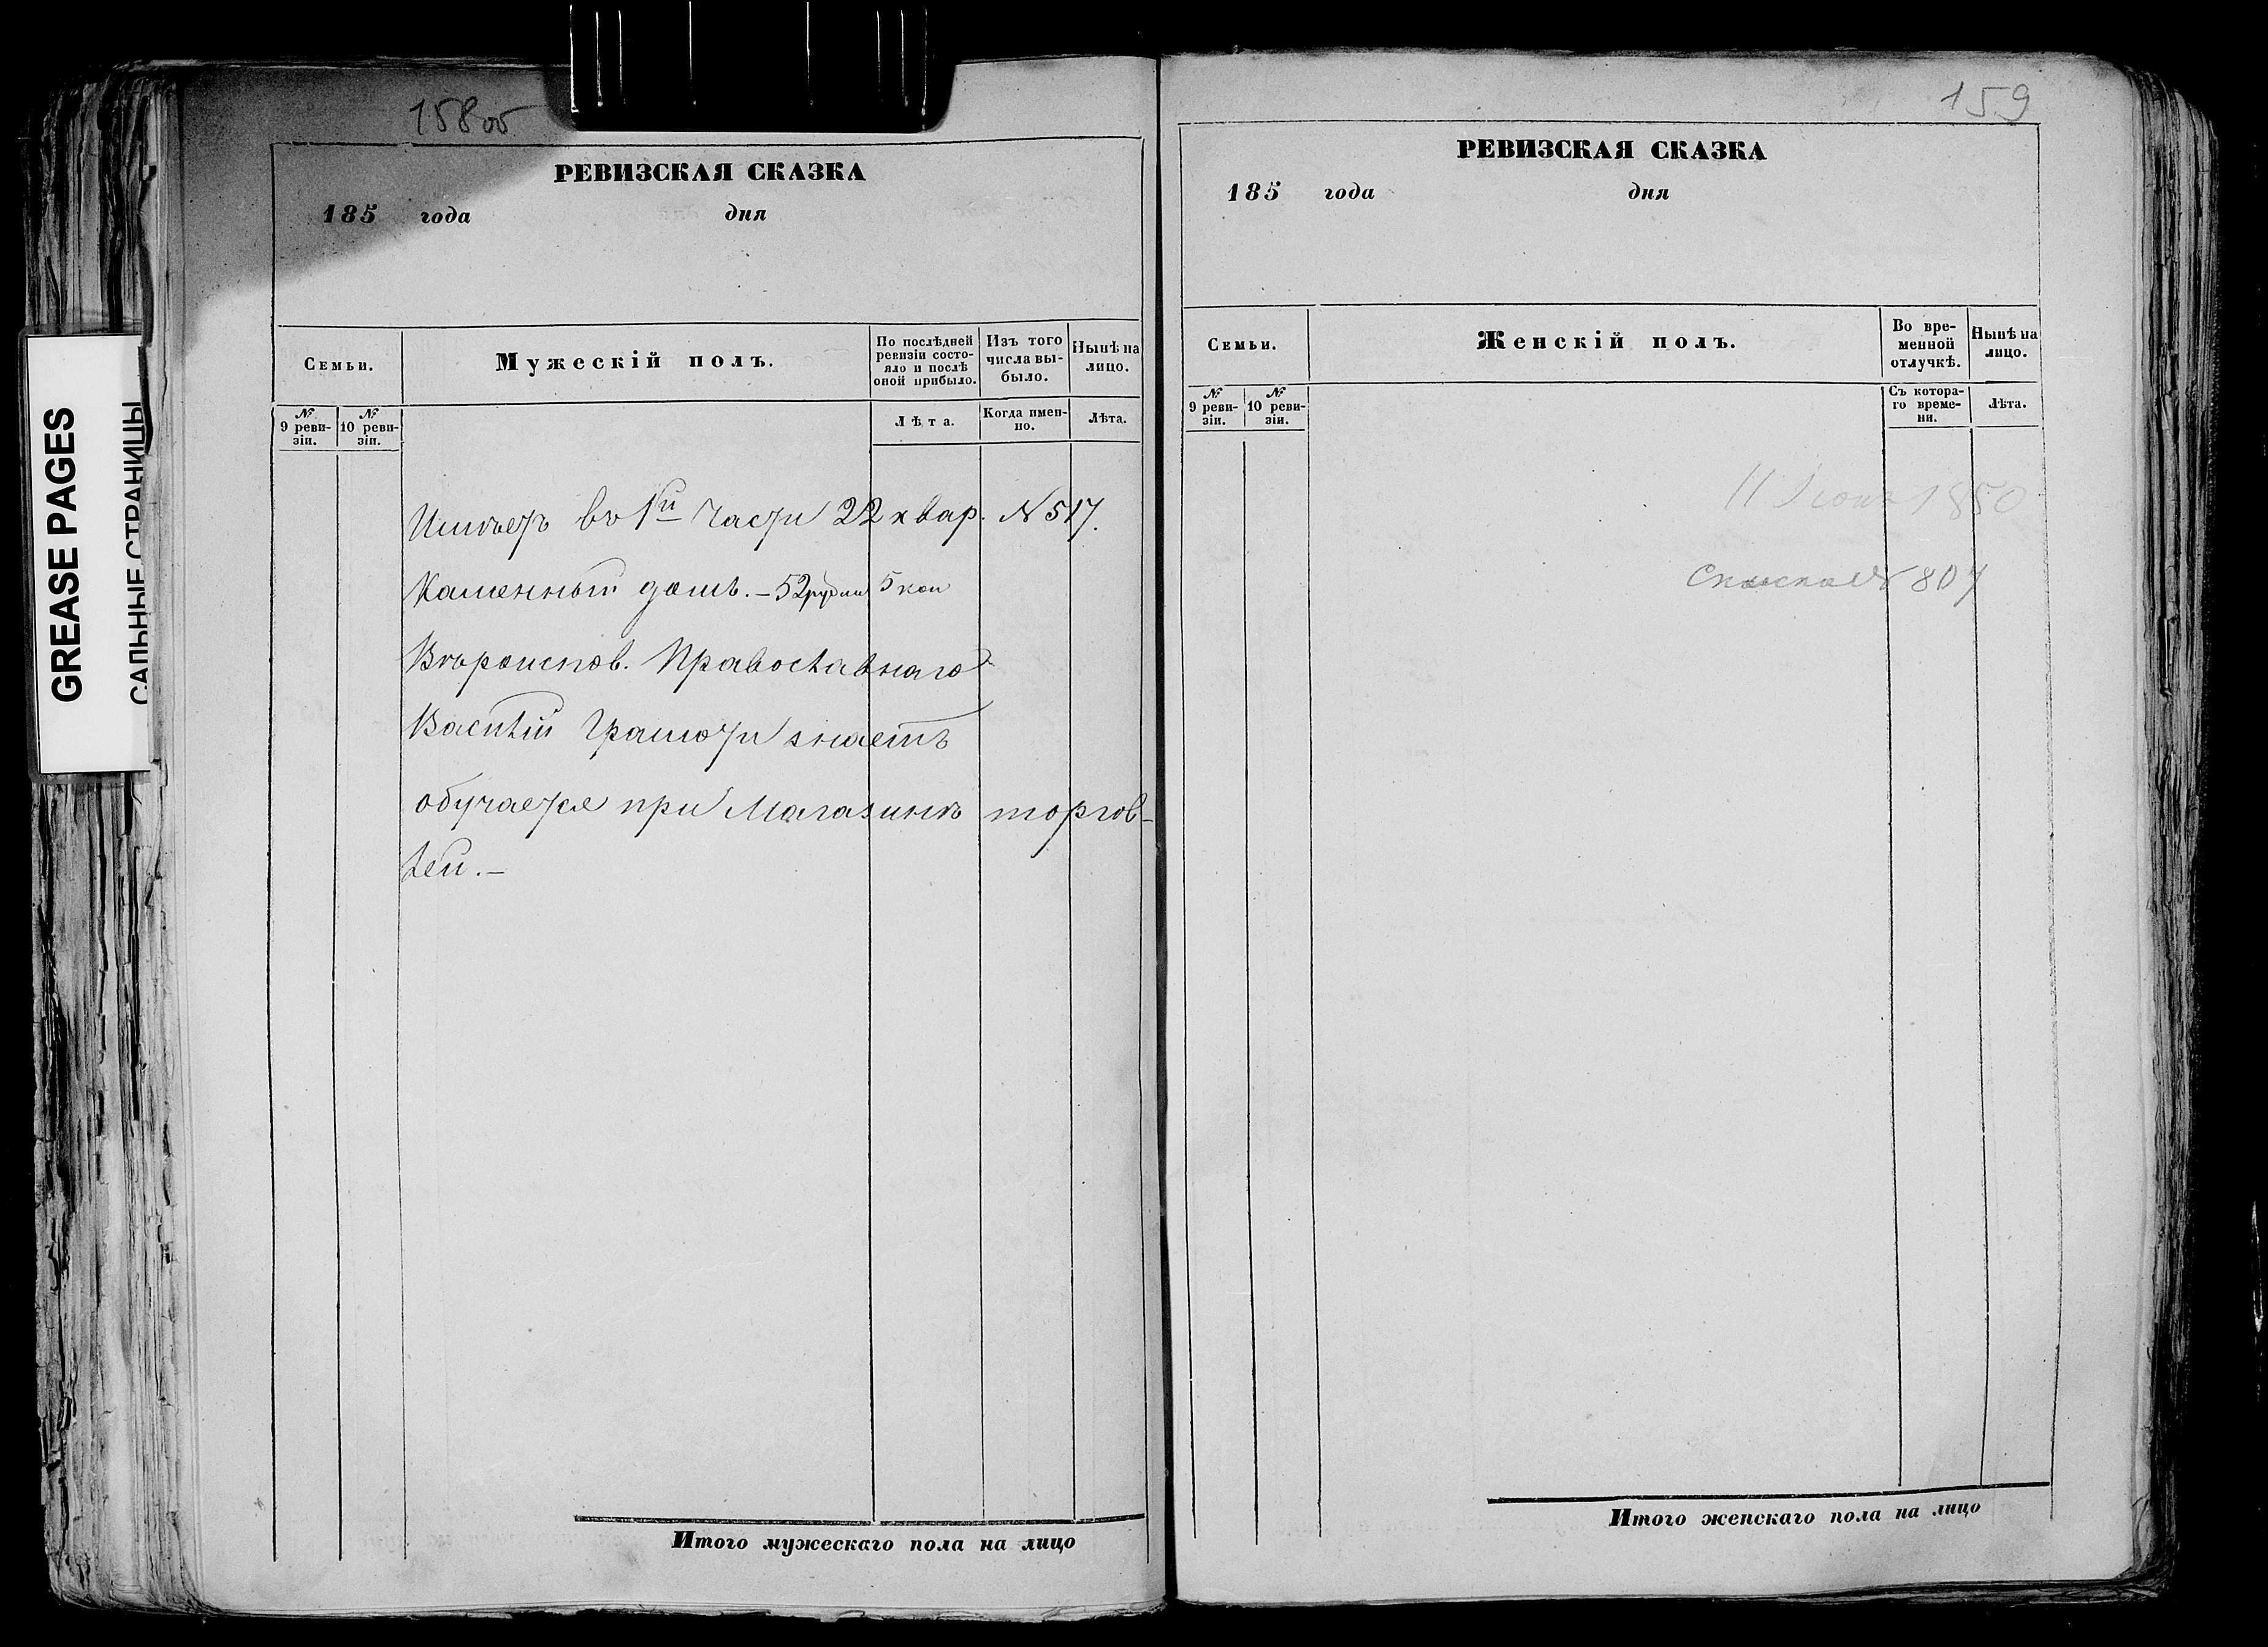 GREASE PAGES
САЛЬНЫЕ СТРАНИЦЫ
158 об
РЕВИЗСКАЯ СКАЗКА
185 года дня
Семьи.
Мужескій полъ.
По послѣдней ревизіи состояло и послѣ оной прибыло.
Изъ того числа выбыло.
Нынѣ на лицо.
№ 9 ревизіи.
№ 10 ревизіи.
Лѣта.
Когда именно.
Лѣта.
Имѣетъ въ 1й части 22 квар. № 517.
Каменный домъ. – 52 рубли 5 коп
Вѣроиспов. Православнаго
Василій Грамоти знаетъ
обучается при Магазинѣ торгов-
лей. –
Итого мужескаго пола на лицо
159
РЕВИЗСКАЯ СКАЗКА
185 года дня
Семьи.
Женскій полъ.
Во временной отлучкѣ.
Нынѣ на лицо.
№ 9 ревизіи.
№ 10 ревизіи.
Съ котораго времени.
Лѣта.
11 1850
№ 807
Итого женскаго пола на лицо